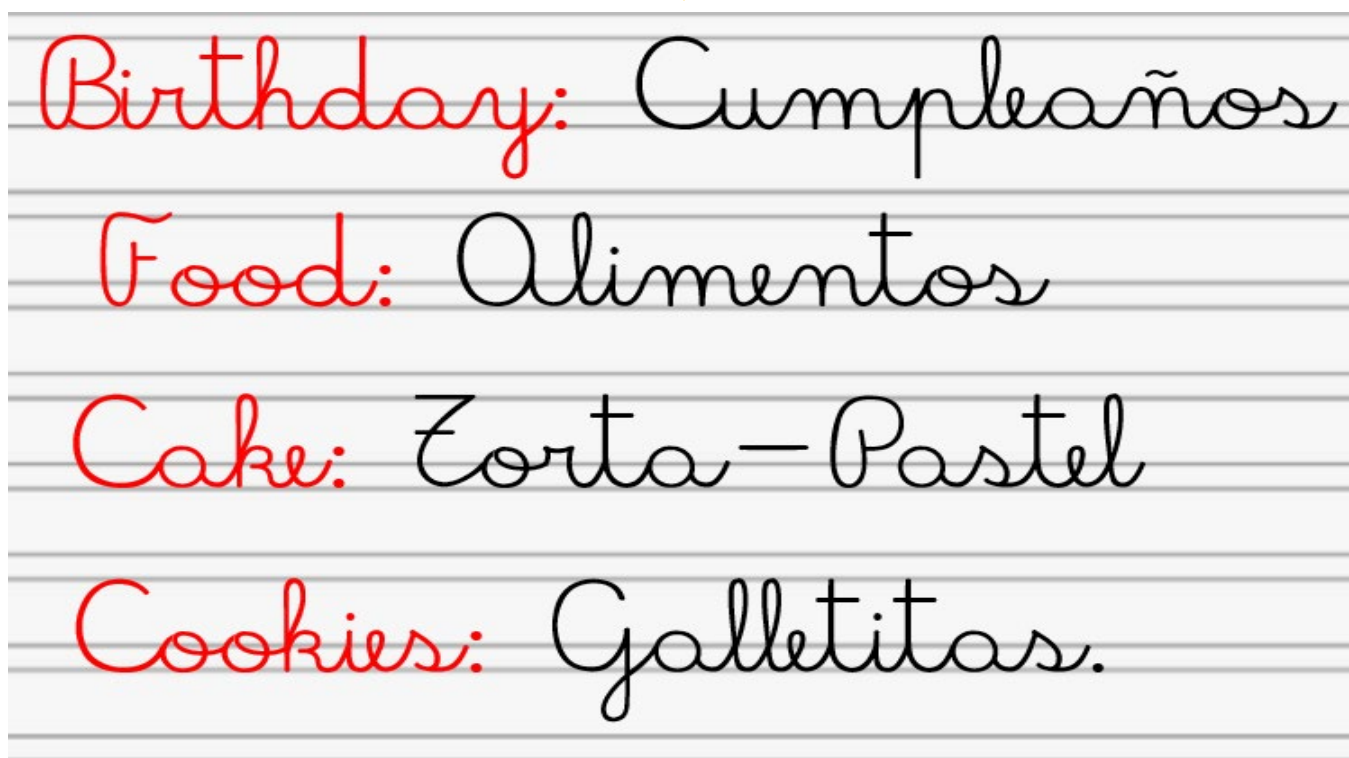 Birthday: Cumpleaños
Food: Alimentos
Cake: Torta-Pastel
Cookies: Galletitas.